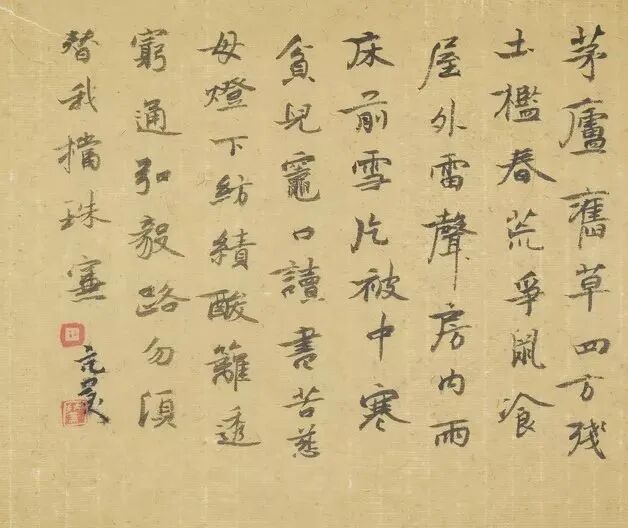 茅廬舊草四方殘
土檻春荒爭鼠飡
屋外雷聲房內雨
床前雪片被中寒
貧兒竈口讀書苦慈
母燈下紡績酸籬透
窮通弘毅路勿須
替我擋珠簾